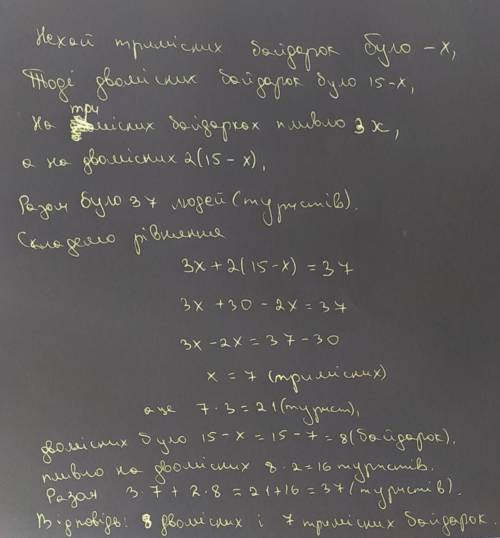 Нехай тримісних байдарок було - x,
Тоді двомісних байдарок було 15-x,
На тримісних байдарках пливло 3x,
а на двомісних 2(15-x),
Разом було 37 людей (туристів).
Складемо рівняння
3x+2(15-x)=37
3x+30-2x=37
3x-2x=37-30
x=7 (тримісних)
а це 7·3=21(турист),
двомісних було 15-x=15-7=8(байдарок).
пливло на двомісних 8·2=16 туристів.
Разом 3·7+2·8=21+16=37(туристів).
Відповідь: 8 двомісних і 7 тримісних байдарок.